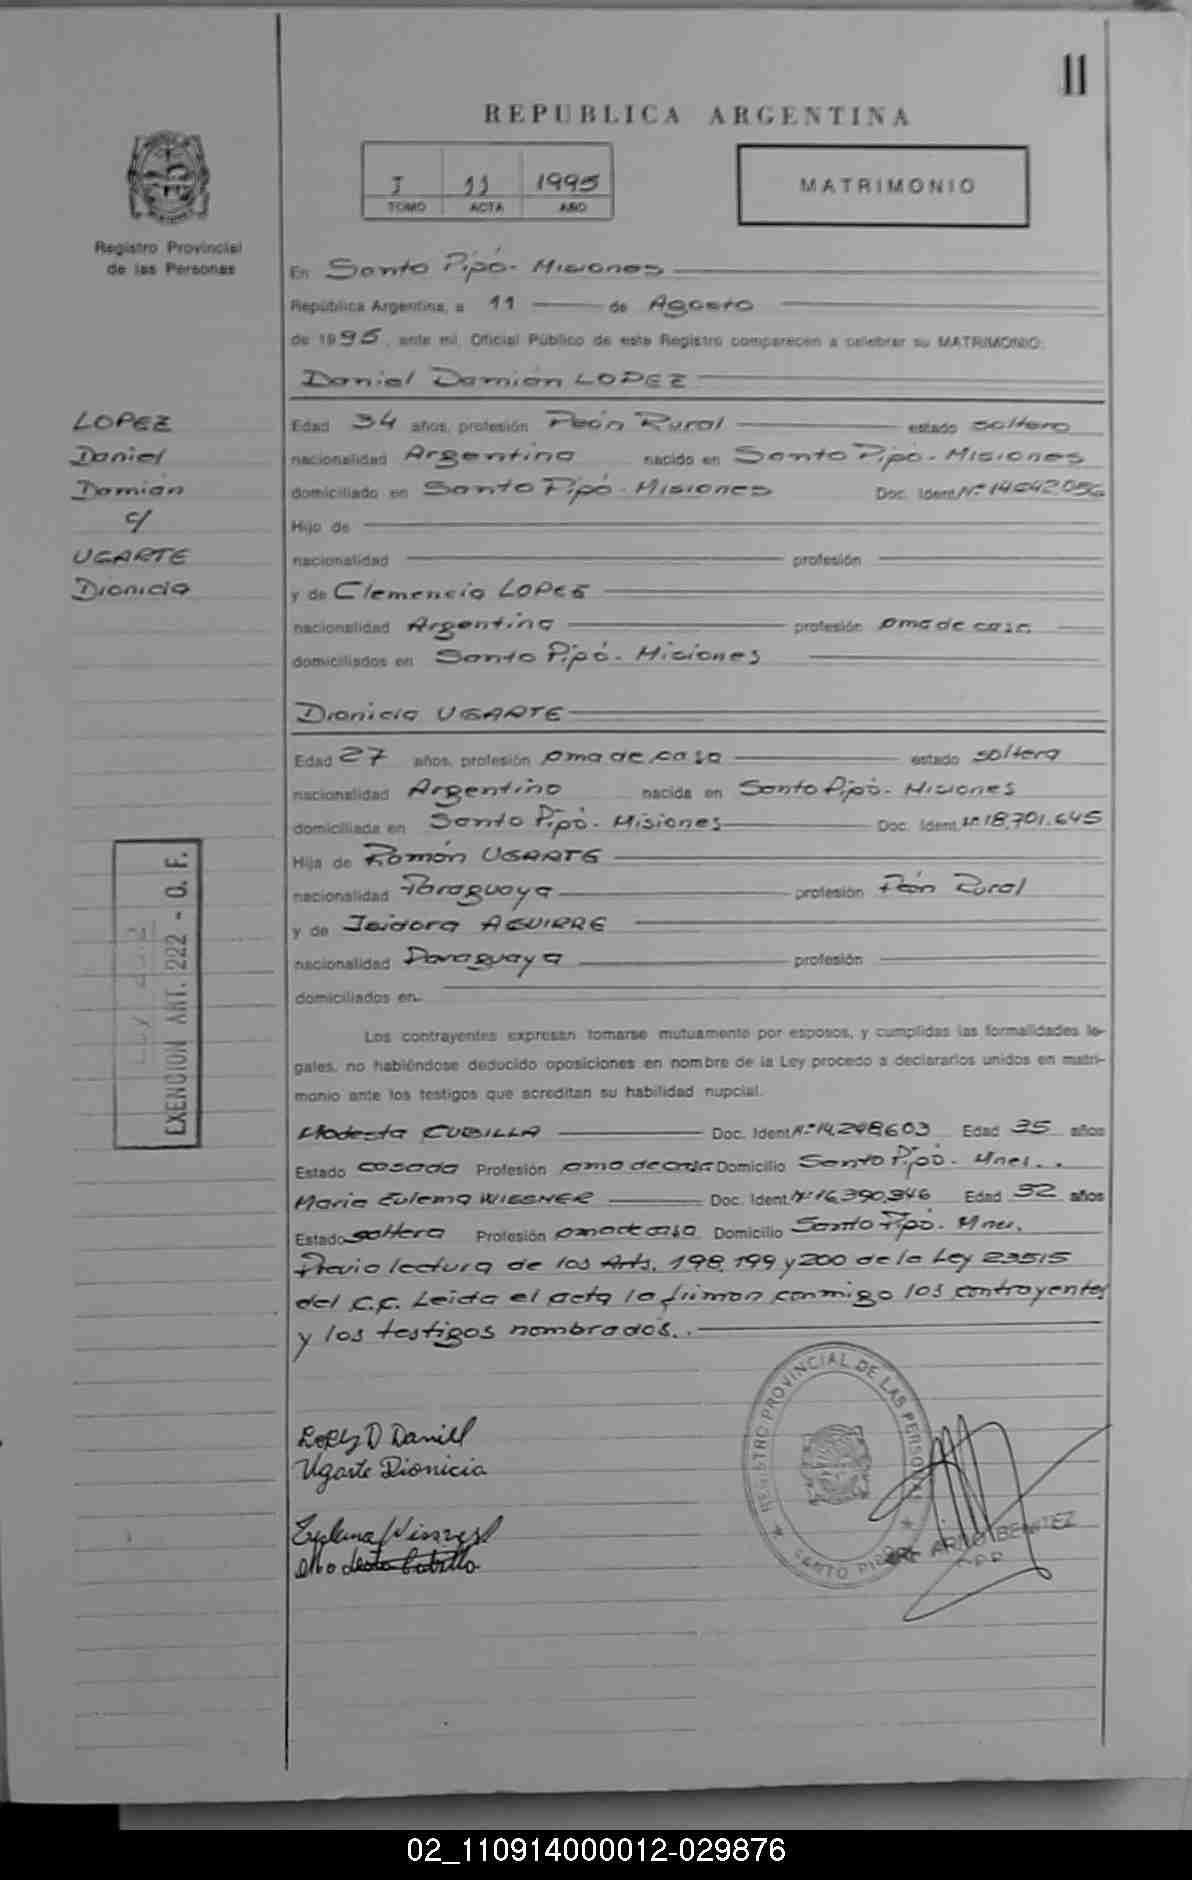 11
REPUBLICA ARGENTINA
I 11 1995
TOMO ACTA AÑO
MATRIMONIO
Registro Provincial
de las Personas
En Santo Pipó - Misiones
República Argentina, a 11 de Agosto
de 1995, ante mí, Oficial Público de este Registro comparecen a celebrar su MATRIMONIO:
Daniel Damián LOPEZ
LOPEZ
Daniel
Damián
c/
UGARTE
Dionicia
Edad 34 años, profesión Peón Rural estado soltero
nacionalidad Argentina nacido en Santo Pipó - Misiones
domiciliado en Santo Pipó - Misiones Doc. Ident. Nº 14.642.056
Hijo de
nacionalidad profesión
y de Clemencia LOPEZ
nacionalidad Argentina profesión ama de casa
domiciliados en Santo Pipó - Misiones
Dionicia UGARTE
Edad 27 años, profesión ama de casa estado soltera
nacionalidad Argentina nacida en Santo Pipó - Misiones
domiciliada en Santo Pipó - Misiones Doc. Ident. Nº 18.701.645
Hija de Ramón UGARTE
nacionalidad Paraguaya profesión Peón Rural
y de Isidora AGUIRRE
nacionalidad Paraguaya profesión
domiciliados en:
EXENCION ART. 222 - C. F.
Los contrayentes expresan tomarse mutuamente por esposos, y cumplidas las formalidades le-
gales, no habiéndose deducido oposiciones en nombre de la Ley procedo a declararlos unidos en matri-
monio ante los testigos que acreditan su habilidad nupcial.
Modesta CUBILLA Doc. Ident. Nº 14.248.603 Edad 35 años
Estado casada Profesión ama de casa Domicilio Santo Pipó - Mnes..
Maria Eulema WIESNER Doc. Ident. Nº 16.390.346 Edad 32 años
Estado soltera Profesión ama de casa Domicilio Santo Pipó - Mnes.
Previo lectura de los Arts. 198, 199 y 200 de la Ley 23515
del C.C. Leida el acta la firman conmigo los contrayentes
y los testigos nombrados..
Lopez D Daniel
Ugarte Dionicia
Modesta Cubilla
REGISTRO PROVINCIAL DE LAS PERSONAS
SANTO PIPO
BENITEZ
02_110914000012-029876